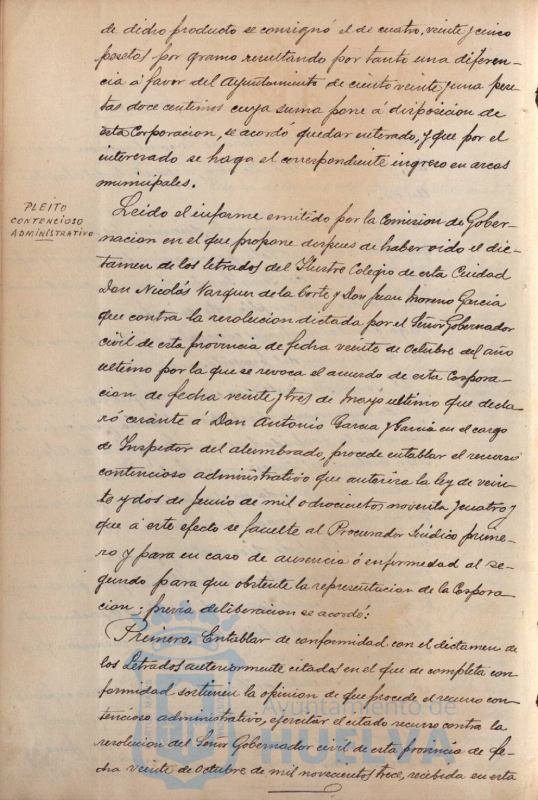 de dicho producto se consignó el de cuatro, veinte y cinco
pesetas por gramo resultando por tanto una diferen-
cia á favor del Ayuntamiento de ciento veinte y una pese-
tas doce centimos cuya suma pone á disposicion de
esta Corporacion, se acordó quedar enterado, y que por el
interesado se haga el correspondiente ingreso en arcas
municipales.
PLEITO
CONTENCIOSO
ADMINISTRATIVO
Leido el informe emitido por la Comision de Gober-
nacion en el que propone despues de haber oido el dic-
tamen de los letrados del Ilustre Colegio de esta Ciudad
Don Nicolás Vazquez de la Corte y Don Juan Moreno Garcia
que contra la resolucion dictada por el Señor Gobernador
civil de esta provincia de fecha veinte de Octubre del año
ultimo por la que se revoca el acuerdo de esta Corpora-
cion de fecha veinte y tres de Mayo ultimo que decla
ró cesante á Don Antonio Garcia y Garcia en el cargo
de Inspector del alumbrado, procede entablar el recurso
contencioso administrativo que autoriza la ley de vein-
te y dos de Junio de mil ochocientos noventa y cuatro y
que á este efecto se faculte al Procurador Sindico prime-
ro y para en caso de ausencia ó enfermedad al se-
gundo para que obstente la representacion de la Corpora-
cion; previa deliberacion se acordó:
Primero. Entablar de conformidad con el dictamen de
los Letrados anteriormente citados en el que de completa con-
formidad sostienen la opinion de que procede el recurso con-
tencioso administrativo, ejercitar el citado recurso contra la
resolucion del Señor Gobernador civil de esta provincia de fe-
cha veinte de Octubre de mil novecientos trece, recibida en esta
Ayuntamiento de
HUELVA